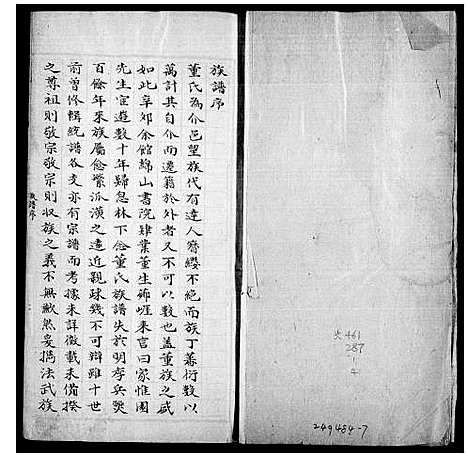 族譜序
董氏為介邑望族代有達人簪纓不絕而族丁蕃衍數以
萬計其自介而遷籍於外者又不可以數也蓋董族之盛
如此辛卯余館綿山書院肄業董生來言曰家惟園
先生宦遊數十年歸息林下念董氏族譜失於明季兵燹
百餘年來族屬愈繁派漢之遠近親疎幾不可辯雖十世
前曾修輯統譜各支亦有宗譜而考據未詳徵載未備揆
之尊祖則敬宗敬宗則収族之義不無歉然妥擕法武族
族譜序
史461
287
1
4
249484-7